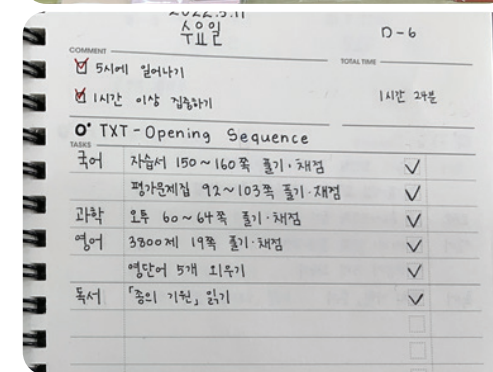 2022.5.11
수요일
D-6
COMMENT
TOTAL TIME
5시에 일어나기
1시간 이상 집중하기
1시간 24분
TXT - Opening Sequence
TASKS
국어 자습서 150~160쪽 풀기·채점 ✓
평가문제집 92~103쪽 풀기·채점 ✓
과학 오투 60~64쪽 풀기·채점 ✓
영어 3800제 19쪽 풀기·채점 ✓
영단어 5개 외우기 ✓
독서 「종의 기원」 읽기 ✓